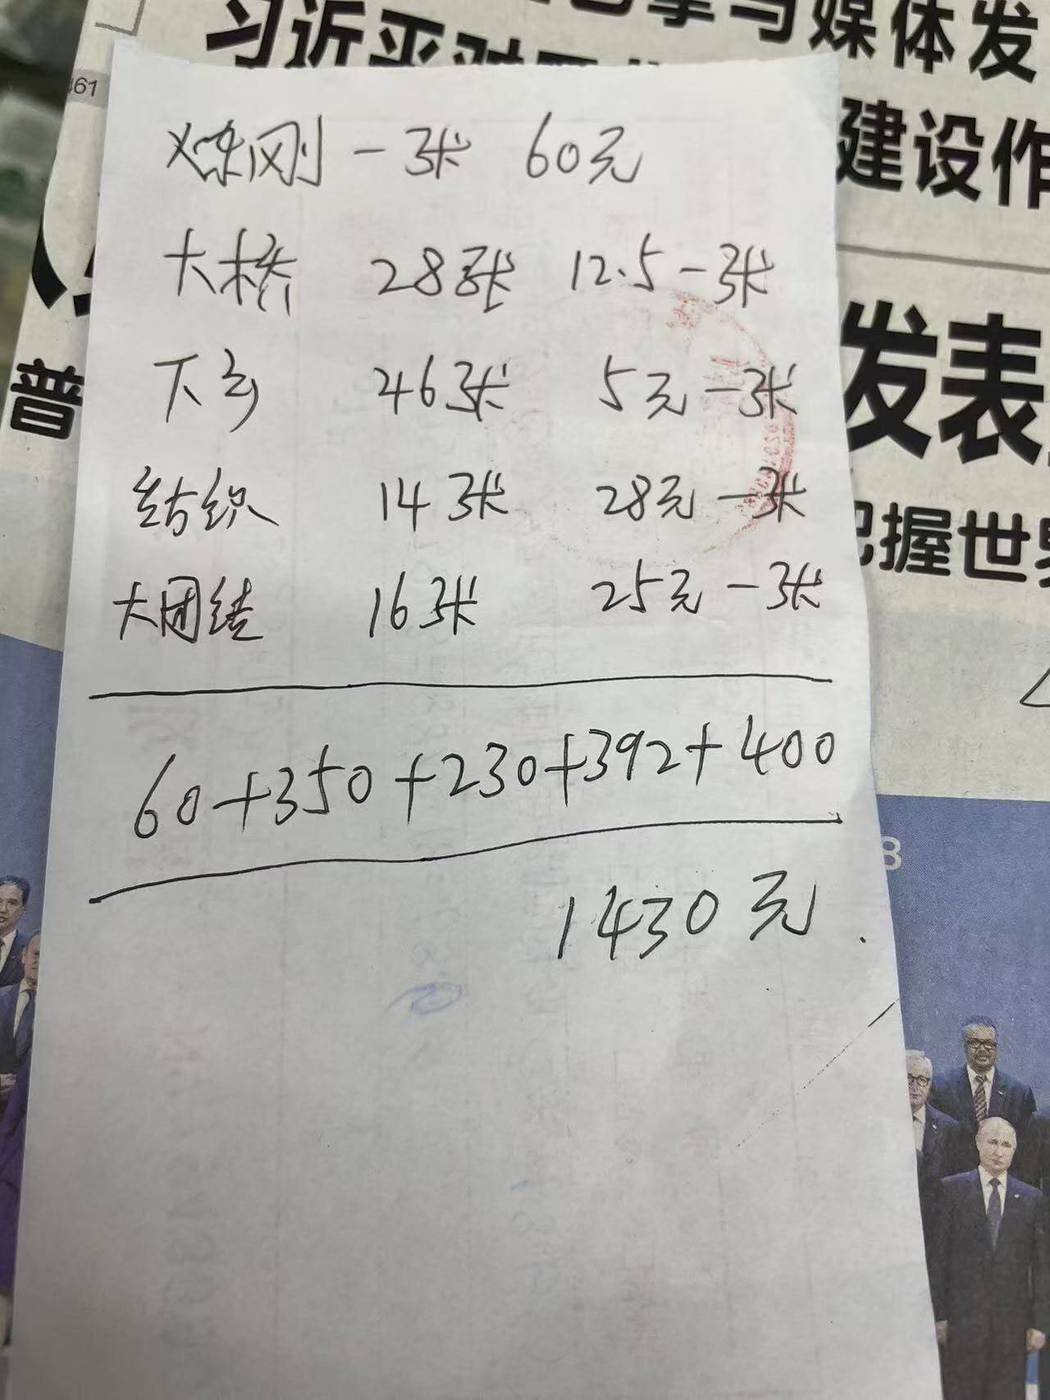 习近平对
与媒体发
建设作
61
炼刚 一张 60元
大桥 28张 12.5一张
发表
普
下乡 46张 5元一张
纺织 14张 28元一张
把握世界
大团结 16张 25元一张
60+350+230+392+400
8
1430元.